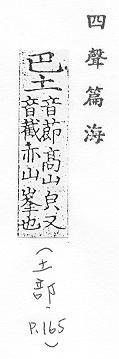 四聲篇海
音節高山皃又
音截亦山峯也
(土部. P.165)